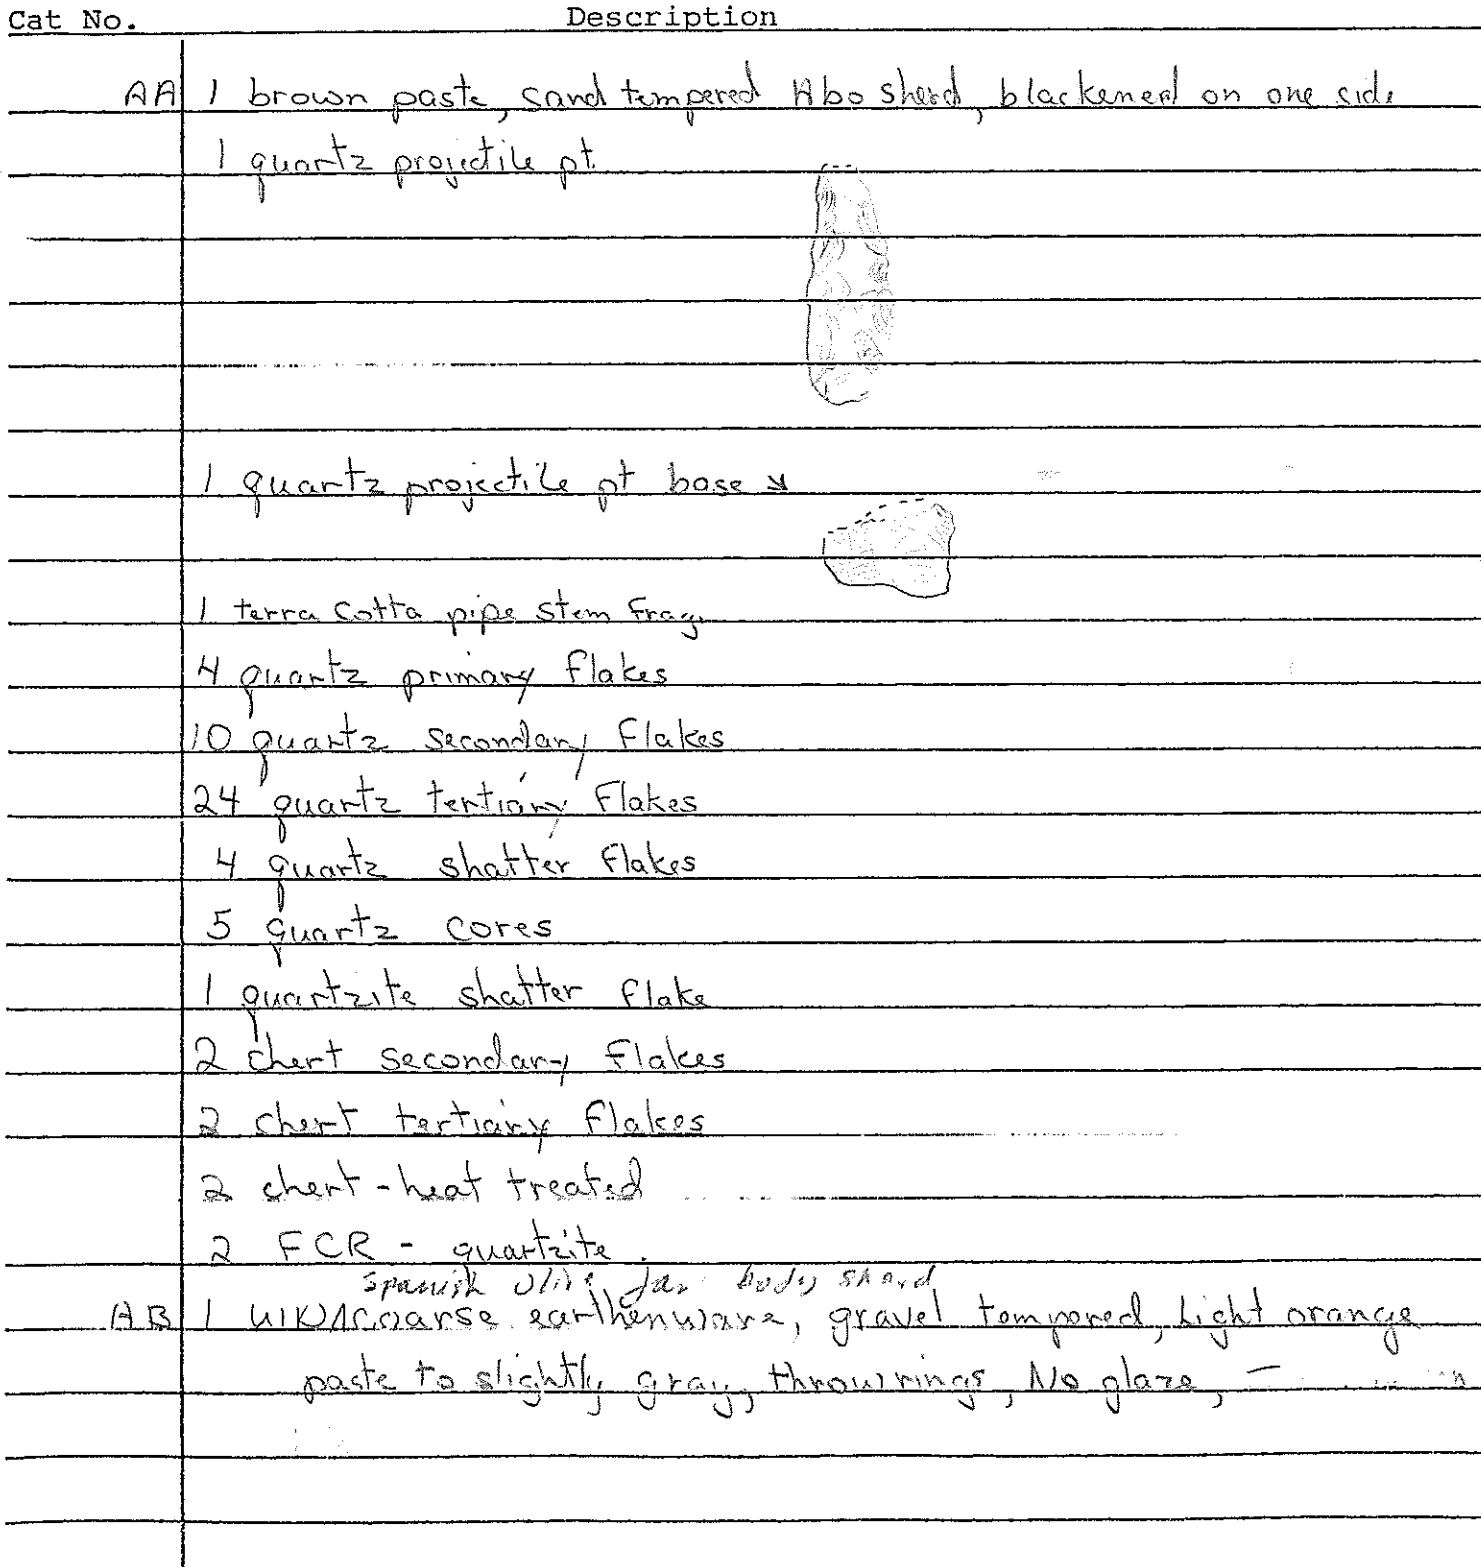 Cat No. Description
AA 1 brown paste, sand tempered Abo sherd, blackened on one side
1 quartz projectile pt.
1 quartz projectile pt base ↘
1 terra cotta pipe stem frag.
4 quartz primary flakes
10 quartz secondary flakes
24 quartz tertiary flakes
4 quartz shatter flakes
5 quartz cores
1 quartzite shatter flake
2 chert secondary flakes
2 chert tertiary flakes
2 chert - heat treated
2 FCR - quartzite
Spanish olive jar body sherd
AB 1 coarse earthenware, gravel tempered, light orange
paste to slightly gray, throw rings, No glaze,